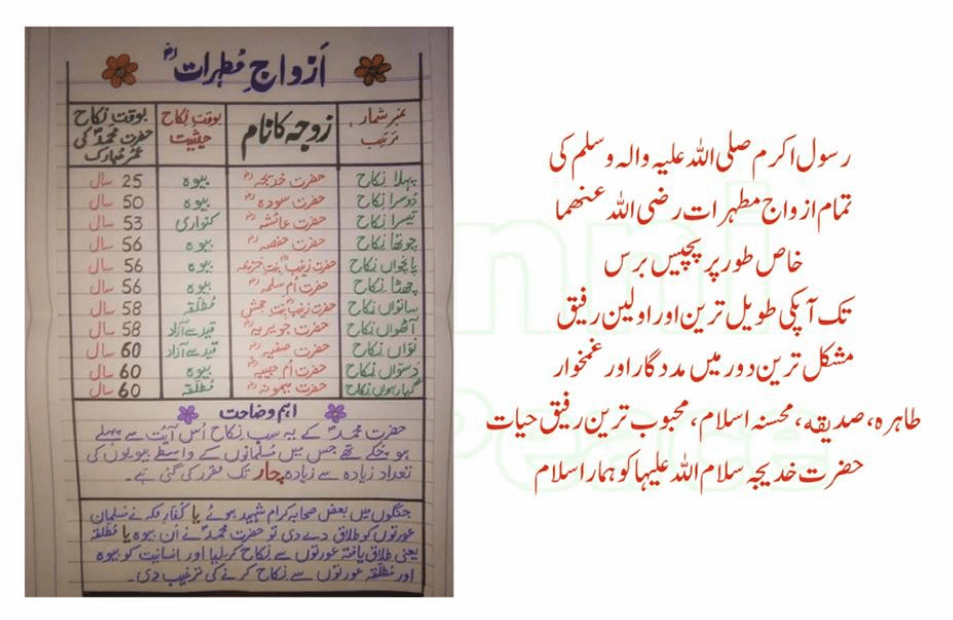 ازواجِ مطہراتؓ
نمبر شمار ترتیب | زوجہ کا نام | بوقتِ نکاح حیثیت | بوقت نکاح حضرت محمدؐ کی عمر مبارک
پہلا نکاح | حضرت خدیجہؓ | بیوہ | 25 سال
دوسرا نکاح | حضرت سودہؓ | بیوہ | 50 سال
تیسرا نکاح | حضرت عائشہؓ | کنواری | 53 سال
چوتھا نکاح | حضرت حفصہؓ | بیوہ | 56 سال
پانچواں نکاح | حضرت زینبؓ بنت خزیمہ | بیوہ | 56 سال
چھٹا نکاح | حضرت اُم سلمہؓ | بیوہ | 56 سال
ساتواں نکاح | حضرت زینبؓ بنت جحشؓ | مُطلقہ | 58 سال
آٹھواں نکاح | حضرت جویریہؓ | قید سے آزاد | 58 سال
نواں نکاح | حضرت صفیہؓ | قید سے آزاد | 60 سال
دسواں نکاح | حضرت اُم حبیبہؓ | بیوہ | 60 سال
گیارہواں نکاح | حضرت میمونہؓ | مُطلقہ | 60 سال
اہم وضاحت
حضرت محمدؐ کے یہ سب نکاح اُس آیت سے پہلے
ہو چکے تھے جس میں مُسلمانوں کے واسطے بیویوں کی
تعداد زیادہ سے زیادہ چار تک مقرر کی گئی ہے۔
جنگوں میں بعض صحابہ کرام شہید ہوئے یا کُفارِ مکہ نے مُسلمان
عورتوں کو طلاق دے دی تو حضرت محمدؐ نے اُن بیوہ یا مُطلقہ
یعنی طلاق یافتہ عورتوں سے نکاح کر لیا اور انسانیت کو بیوہ
اور مُطلقہ عورتوں سے نکاح کرنے کی ترغیب دی۔
رسول اکرم صلی اللہ علیہ والہ وسلم کی
تمام ازواج مطہرات رضی اللہ عنھما
خاص طور پر پچیس برس
تک آپکی طویل ترین اور اولین رفیق
مشکل ترین دور میں مددگار اور غمخوار
طاہرہ، صدیقہ، محسنہ اسلام، محبوب ترین رفیق حیات
حضرت خدیجہ سلام اللہ علیہا کو ہمارا سلام